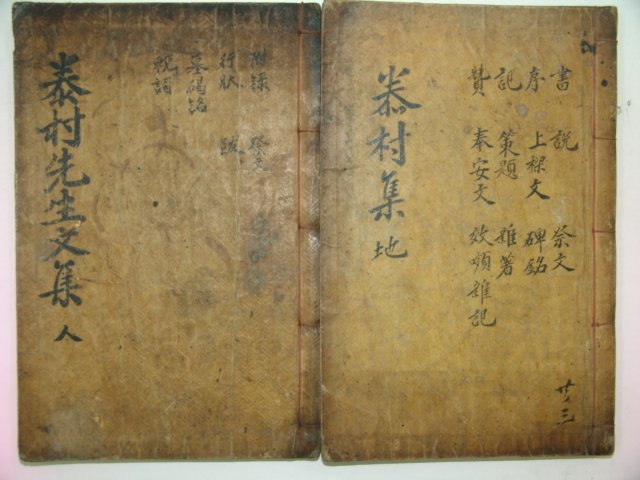 書 說 祭文
序 上樑文 碑銘
記 策題 雜著
贊 奉安文 效嚬雜記
泰村集 地
共三
附錄 祭文
行狀 跋
墓碣銘
輓詞
泰村先生文集 人